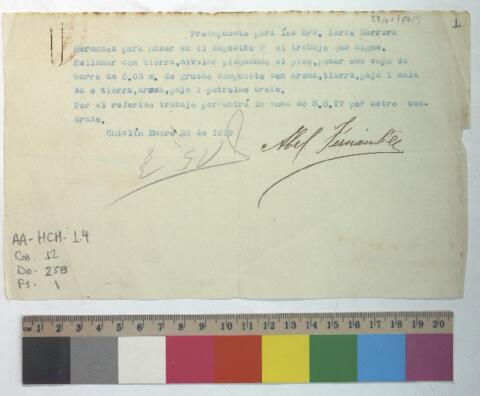 1
Presupuesto para los Srs. Larco Herrera
Hermanos para haser en el deposito # el trabajo que sigue.
Rellenar con tierra, nivelar pisoneando el piso, poner una capa de
barro de 0.03 m. de grueso compuesto con arena, tierra, paja i mela
sa o tierra, arena, paja i petroleo bruto.
Por el referido trabajo percibirá la suma de S.O.IV por metro cua-
drado.
Chiclin Enero 28 de 1919
Abel Fernandez
AA-HCH-1.4
Can. 12
Do- 258
Fs- 1
CM 1 2 3 4 5 6 7 8 9 10 11 12 13 14 15 16 17 18 19 20